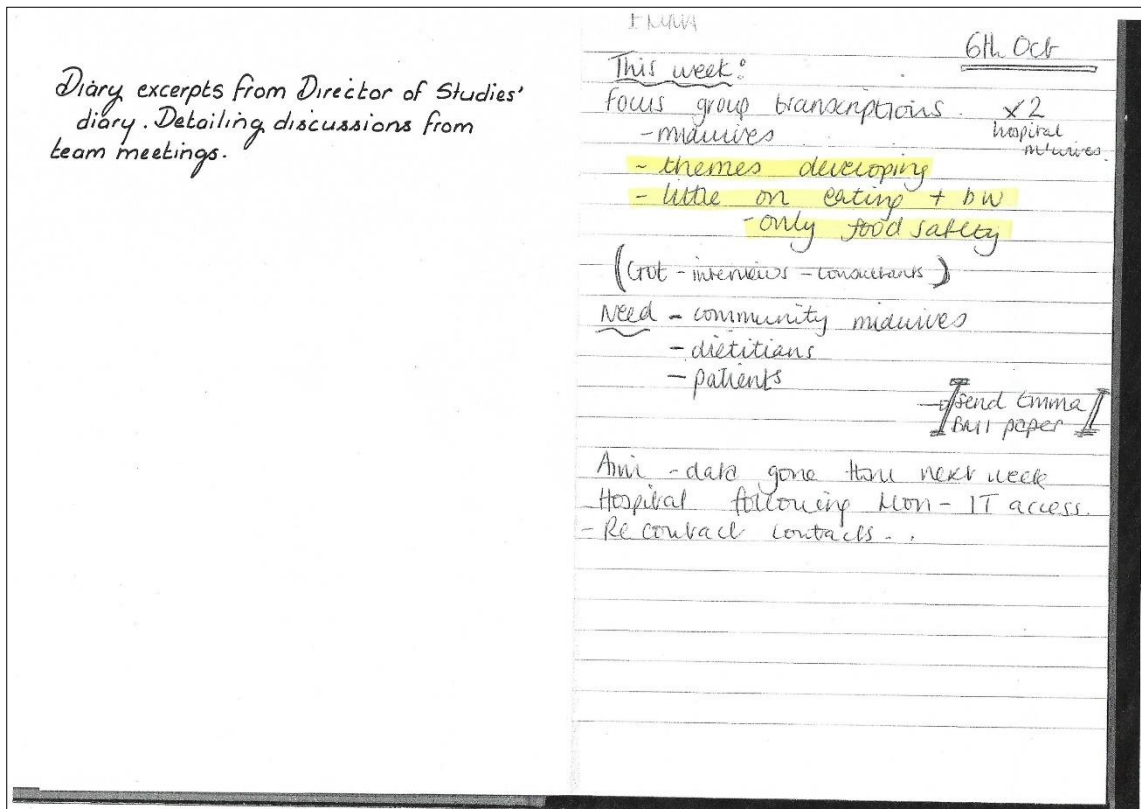 Diary excerpts from Director of Studies'
diary. Detailing discussions from
team meetings.
EMMA
6th Oct
This week:
Focus group transcriptions. x2
hospital
midwives.
- midwives
- themes developing
- little on eating + bw
- only food safety
(Got - interviews - consultants)
Need - community midwives
- dietitians
- patients
→ Send Emma
BMI paper
Aim - data gone next week
Hospital following Mon - IT access.
- Re contact contacts..